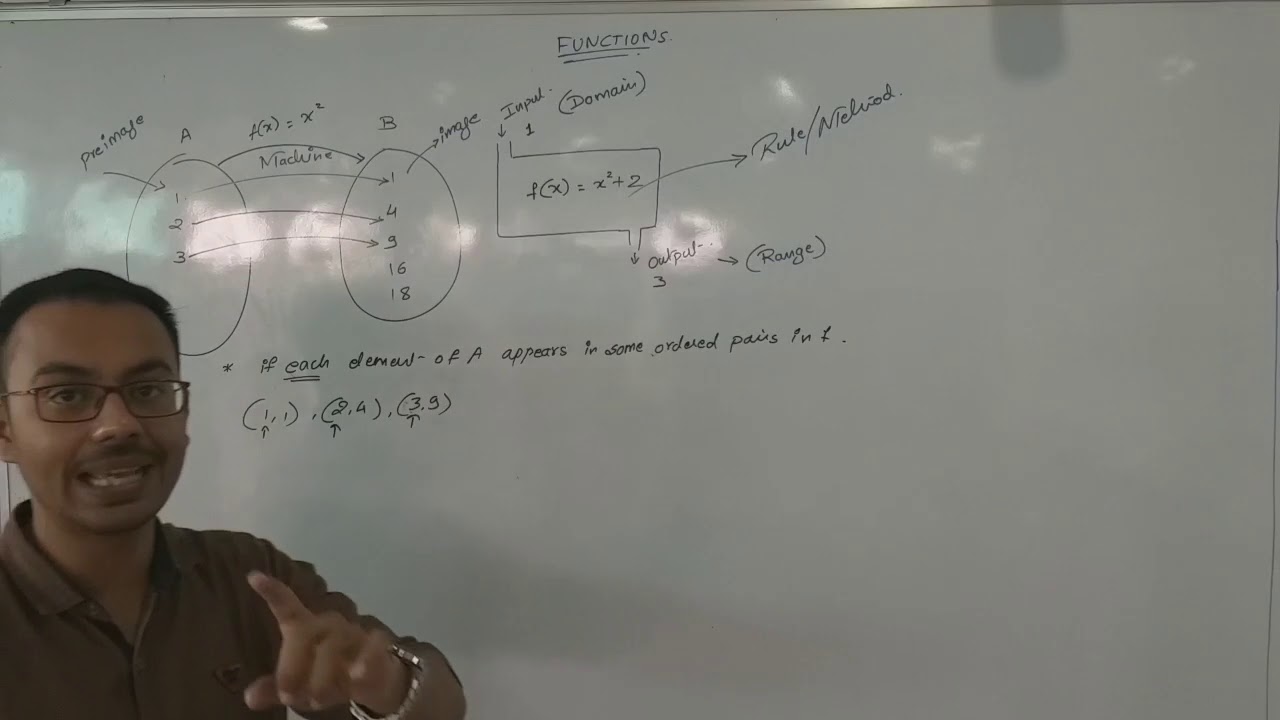 FUNCTIONS.
preimage
A
f(x) = x²
Machine
B
image
1
2
3
1
4
9
16
18
Input. (Domain)
1
f(x) = x²+2
Rule/Method.
Output → (Range)
3
* if each element of A appears in some ordered pairs in f.
(1,1), (2,4), (3,9)